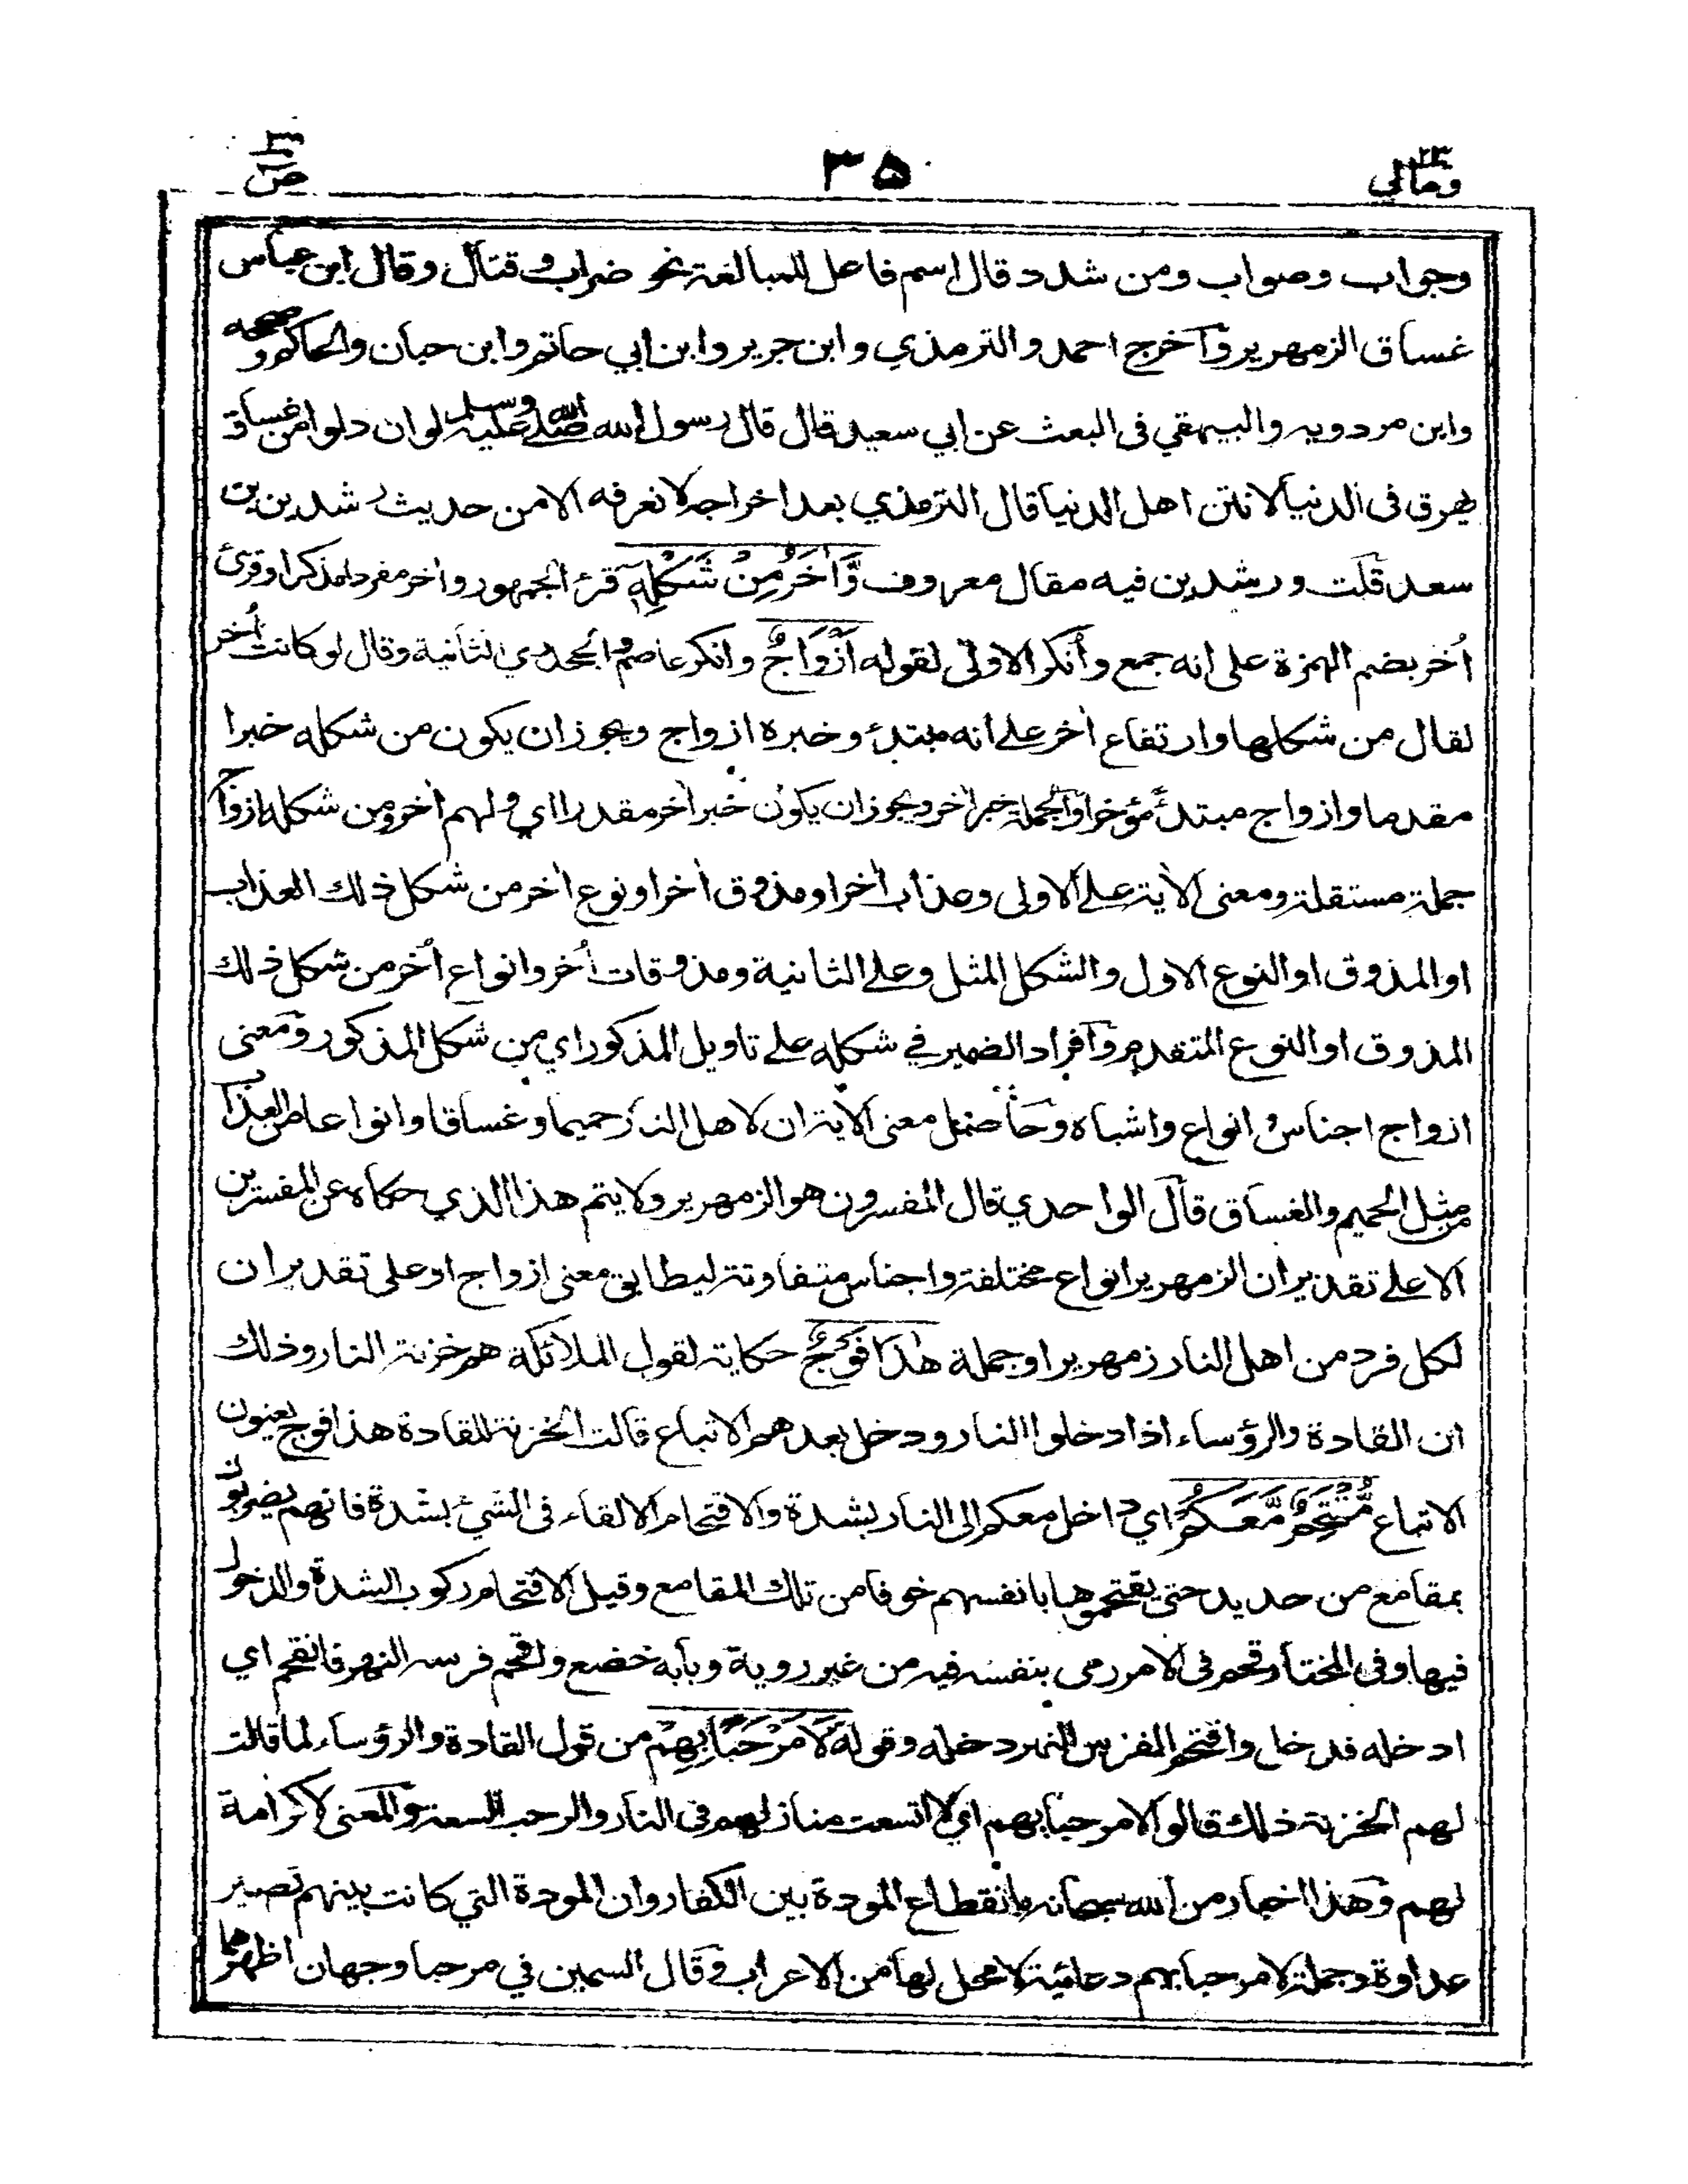 ومالي ٢٣
٣٥
ص ٣٨
وجواب وصواب ومن شدد قال اسم فاعل للمبالغة نحو ضراب وقتال وقال ابن عباس
غساق الزمهرير وآخرج احمد والترمذي وابن جرير وابن ابي حاتم وابن حبان والحاكم وصححه
وابن مردويه والبيهقي فى البعث عن ابي سعيد قال قال رسول الله صلى الله عليه وسلم لو ان دلوا من غساق
يهرق فى الدنيا لانتن اهل الدنيا قال الترمذي بعد اخراجه لا نعرفه الا من حديث رشدين بن
سعد قلت ورشدين فيه مقال معروف وَّآخَرُ مِنْ شَكْلِهٖ قرئ الجمهور وآخر مفردا مذكرا وقرئ
اُخر بضم الهمزة على انه جمع وأنكر الاولى لقوله اَزْوَاجٌ وانكر عاصم الجحدري الثانية وقال لو كانت اُخر
لقال من شكلها وارتفاع آخر على انه مبتدئ وخبره ازواج ويجوز ان يكون من شكله خبرا
مقدما وازواج مبتدأ مؤخرا والجملة خبر آخر ويجوز ان يكون خبر آخر مقدرا اي ولهم آخر ومن شكله ازواج
جملة مستقلة ومعنى الآية على الاولى وعذاب آخر او مذوق آخر او نوع آخر من شكل ذلك العذاب
او المذوق او النوع الاول والشكل المثل وعلى الثانية ومذوقات اُخر وانواع اُخر من شكل ذلك
المذوق او النوع المتقدم وآفراد الضمير في شكله على تاويل المذكور اي من شكل المذكور ومعنى
ازواج اجناس وانواع واشباه وحاصل معنى الآية ان لاهل النار حميما وغساقا وانواعا من العذاب
من مثل الحميم والغساق قآل الواحدي قال المفسرون هو الزمهرير ولا يتم هذا الذي حكاه عن المفسرين
الا على تقدير ان الزمهرير انواع مختلفة واجناس متفاوتة ليطابق معنى ازواج او على تقدير ان
لكل فرد من اهل النار زمهريرا وجملة هٰذَا فَوْجٌ حكاية لقول الملائكة هم خزنة النار وذلك
ان القادة والرؤساء اذا دخلوا النار ودخل بعدهم الاتباع قالت الخزنة للقادة هذا فوج يعنون
الاتباع مُّقْتَحِمٌ مَّعَكُمْ اي داخل معكم الى النار بشدة والاقتحام الالقاء فى الشيئ بشدة فانهم يضربون
بمقامع من حديد حتى يقتحموها بانفسهم خوفا من تلك المقامع وقيل الاقتحام ركوب الشدة والدخول
فيها وفى المختار وقحم فى الامر رمى بنفسه فيه من غير روية وبابه خضع واقحم فرسه النهر فانقحم اي
ادخله فدخل واقتحم الفرس النهر دخله وقوله لَا مَرْحَبًا بِهِمْ من قول القادة والرؤساء لما قالت
لهم الخزنة ذلك قالوا لا مرحبا بهم اي لا اتسعت منازلهم فى النار والرحب السعة والمعنى لا كرامة
لهم وهذا اخبار من الله سبحانه بانقطاع المودة بين الكفار وان المودة التي كانت بينهم تصير
عداوة وجملة لا مرحبا بهم دعائية لا محل لها من الاعراب وقال السمين في مرحبا وجهان اظهرهما